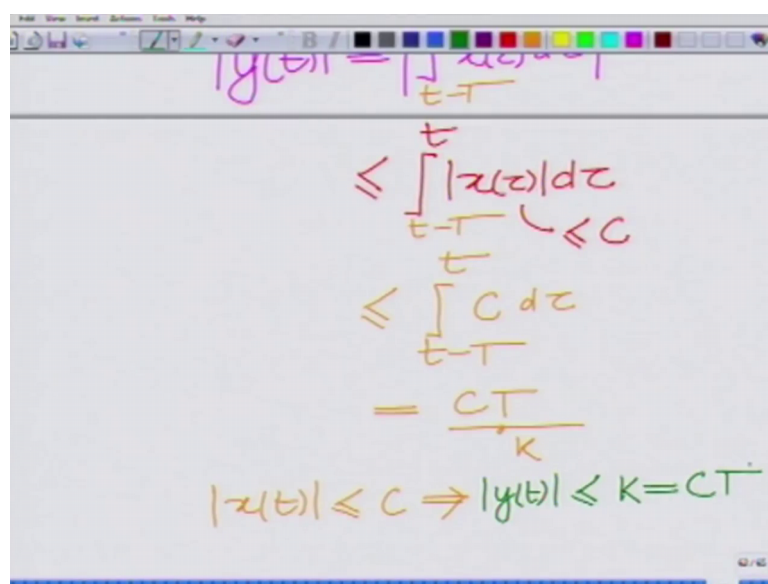 Edit View Insert Actions Tools Help
|y(t)| = |∫ x(τ)dτ|
t-T
t
≤ ∫ |x(τ)|dτ
t-T ≤ C
t
≤ ∫ C dτ
t-T
= CT
K
|x(t)| ≤ C ⇒ |y(t)| ≤ K = CT